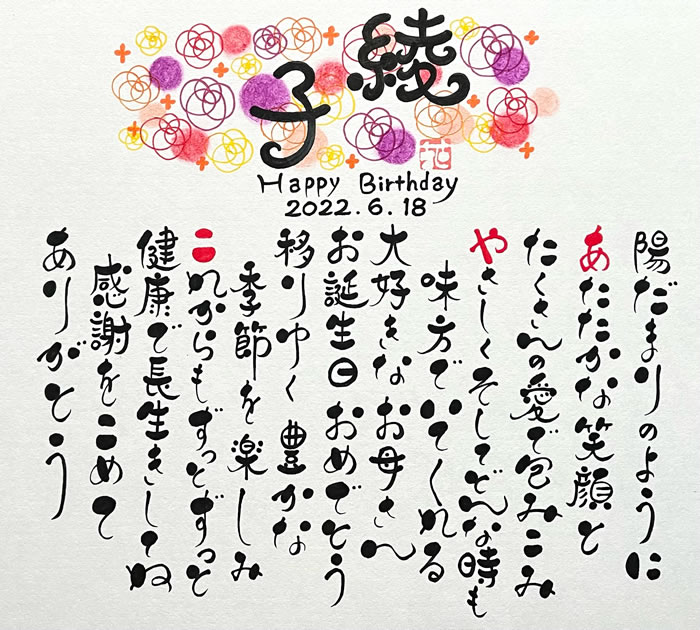 綾子
Happy Birthday
2022.6.18
陽だまりのように
あたたかな笑顔と
たくさんの愛で包みこみ
やさしくそしてどんな時も
味方でいてくれる
大好きなお母さん
お誕生日おめでとう
移りゆく豊かな
季節を楽しみ
これからもずっとずっと
健康で長生きしてね
感謝をこめて
ありがとう